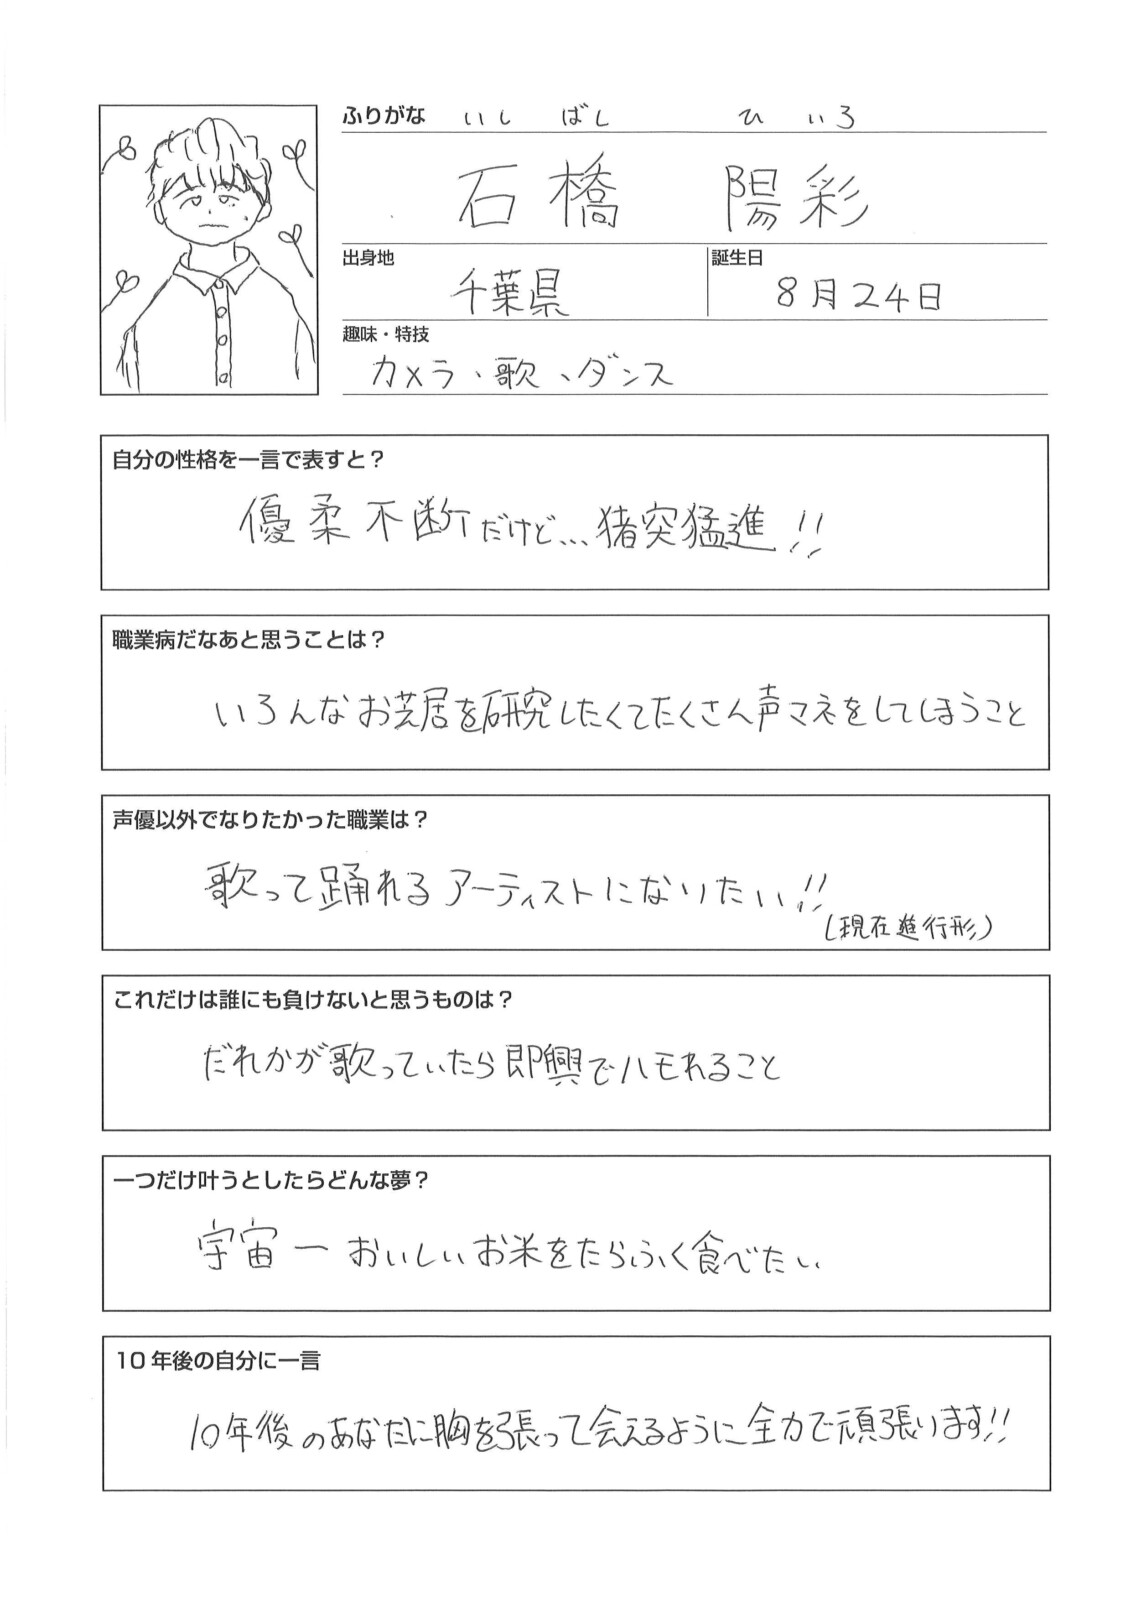 ふりがな いし ばし ひ いろ
石橋 陽彩
出身地 千葉県 誕生日 8月24日
趣味・特技
カメラ、歌、ダンス
自分の性格を一言で表すと？
優柔不断だけど…猪突猛進!!
職業病だなあと思うことは？
いろんなお芝居を研究したくてたくさん声マネをしてしまうこと
声優以外でなりたかった職業は？
歌って踊れるアーティストになりたい!!
(現在進行形)
これだけは誰にも負けないと思うものは？
だれかが歌っていたら即興でハモれること
一つだけ叶うとしたらどんな夢？
宇宙一おいしいお米をたらふく食べたい
10年後の自分に一言
10年後のあなたに胸を張って会えるように全力で頑張ります!!